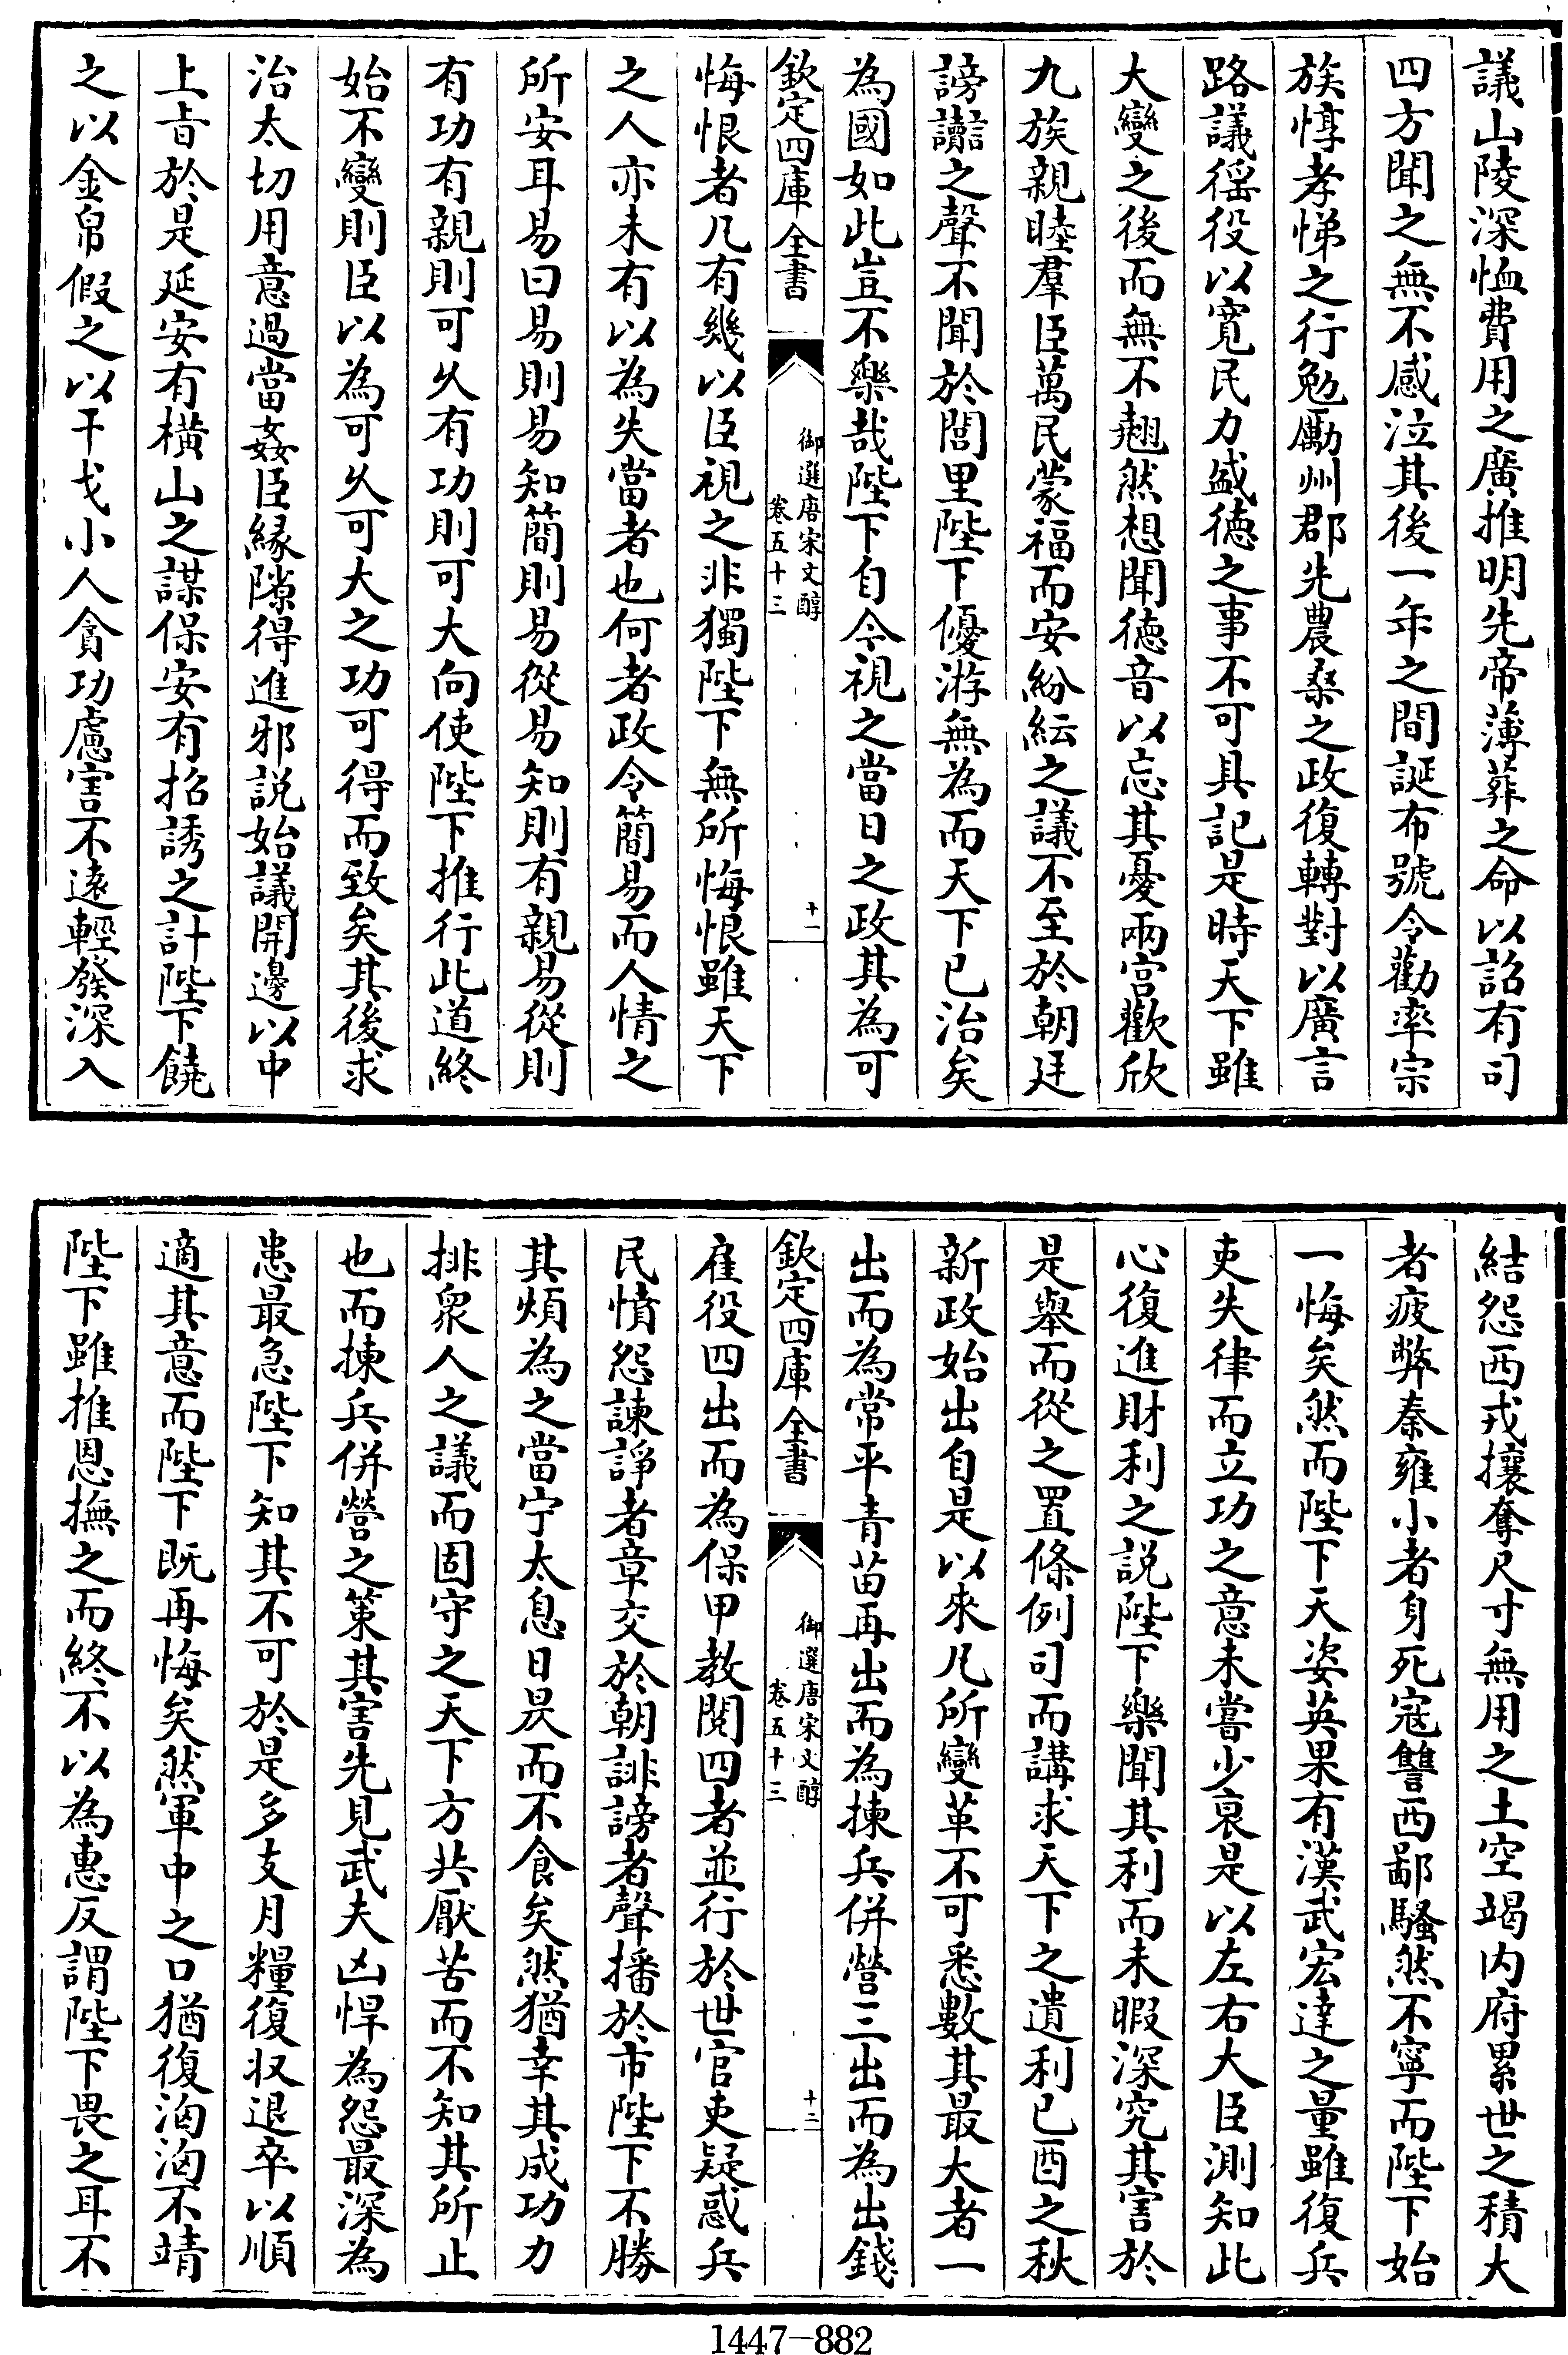 議山陵深恤費用之廣推明先帝薄葬之命以詔有司
四方聞之無不感泣其後一年之間誕布號令勸率宗
族惇孝悌之行勉勵州郡先農桑之政復轉對以廣言
路議徭役以寬民力盛德之事不可具記是時天下雖
大變之後而無不翹然想聞德音以忘其憂兩宮歡欣
九族親睦羣臣萬民蒙福而安紛紜之議不至於朝廷
謗讟之聲不聞於閭里陛下優游無為而天下已治矣
為國如此豈不樂哉陛下自今視之當日之政其為可
欽定四庫全書
御選唐宋文醇
卷五十三
十一
悔恨者凡有幾以臣視之非獨陛下無所悔恨雖天下
之人亦未有以為失當者也何者政令簡易而人情之
所安耳易曰易則易知簡則易從易知則有親易從則
有功有親則可久有功則可大向使陛下推行此道終
始不變則臣以為可久可大之功可得而致矣其後求
治太切用意過當姦臣緣隙得進邪説始議開邊以中
上㫖於是延安有橫山之謀保安有招誘之計陛下饒
之以金帛假之以干戈小人貪功慮害不遠輕發深入
結怨西戎攘奪尺寸無用之土空竭内府累世之積大
者疲弊秦雍小者身死寇讐西鄙騷然不寧而陛下始
一悔矣然而陛下天姿英果有漢武宏達之量雖復兵
吏失律而立功之意未嘗少衰是以左右大臣測知此
心復進財利之説陛下樂聞其利而未暇深究其害於
是舉而從之置條例司而講求天下之遺利已酉之秋
新政始出自是以來凡所變革不可悉數其最大者一
出而為常平青苗再出而為揀兵併營三出而為出錢
欽定四庫全書
御選唐宋文醇
卷五十三
十二
雇役四出而為保甲教閱四者並行於世官吏疑惑兵
民憤怨諫諍者章交於朝誹謗者聲播於市陛下不勝
其煩為之當宁太息日昃而不食矣然猶幸其成功力
排衆人之議而固守之天下方共厭苦而不知其所止
也而揀兵併營之策其害先見武夫凶悍為怨最深為
患最急陛下知其不可於是多支月糧復収退卒以順
適其意而陛下既再悔矣然軍中之口猶復洶洶不靖
陛下雖推恩撫之而終不以為惠反謂陛下畏之耳不
1447-882